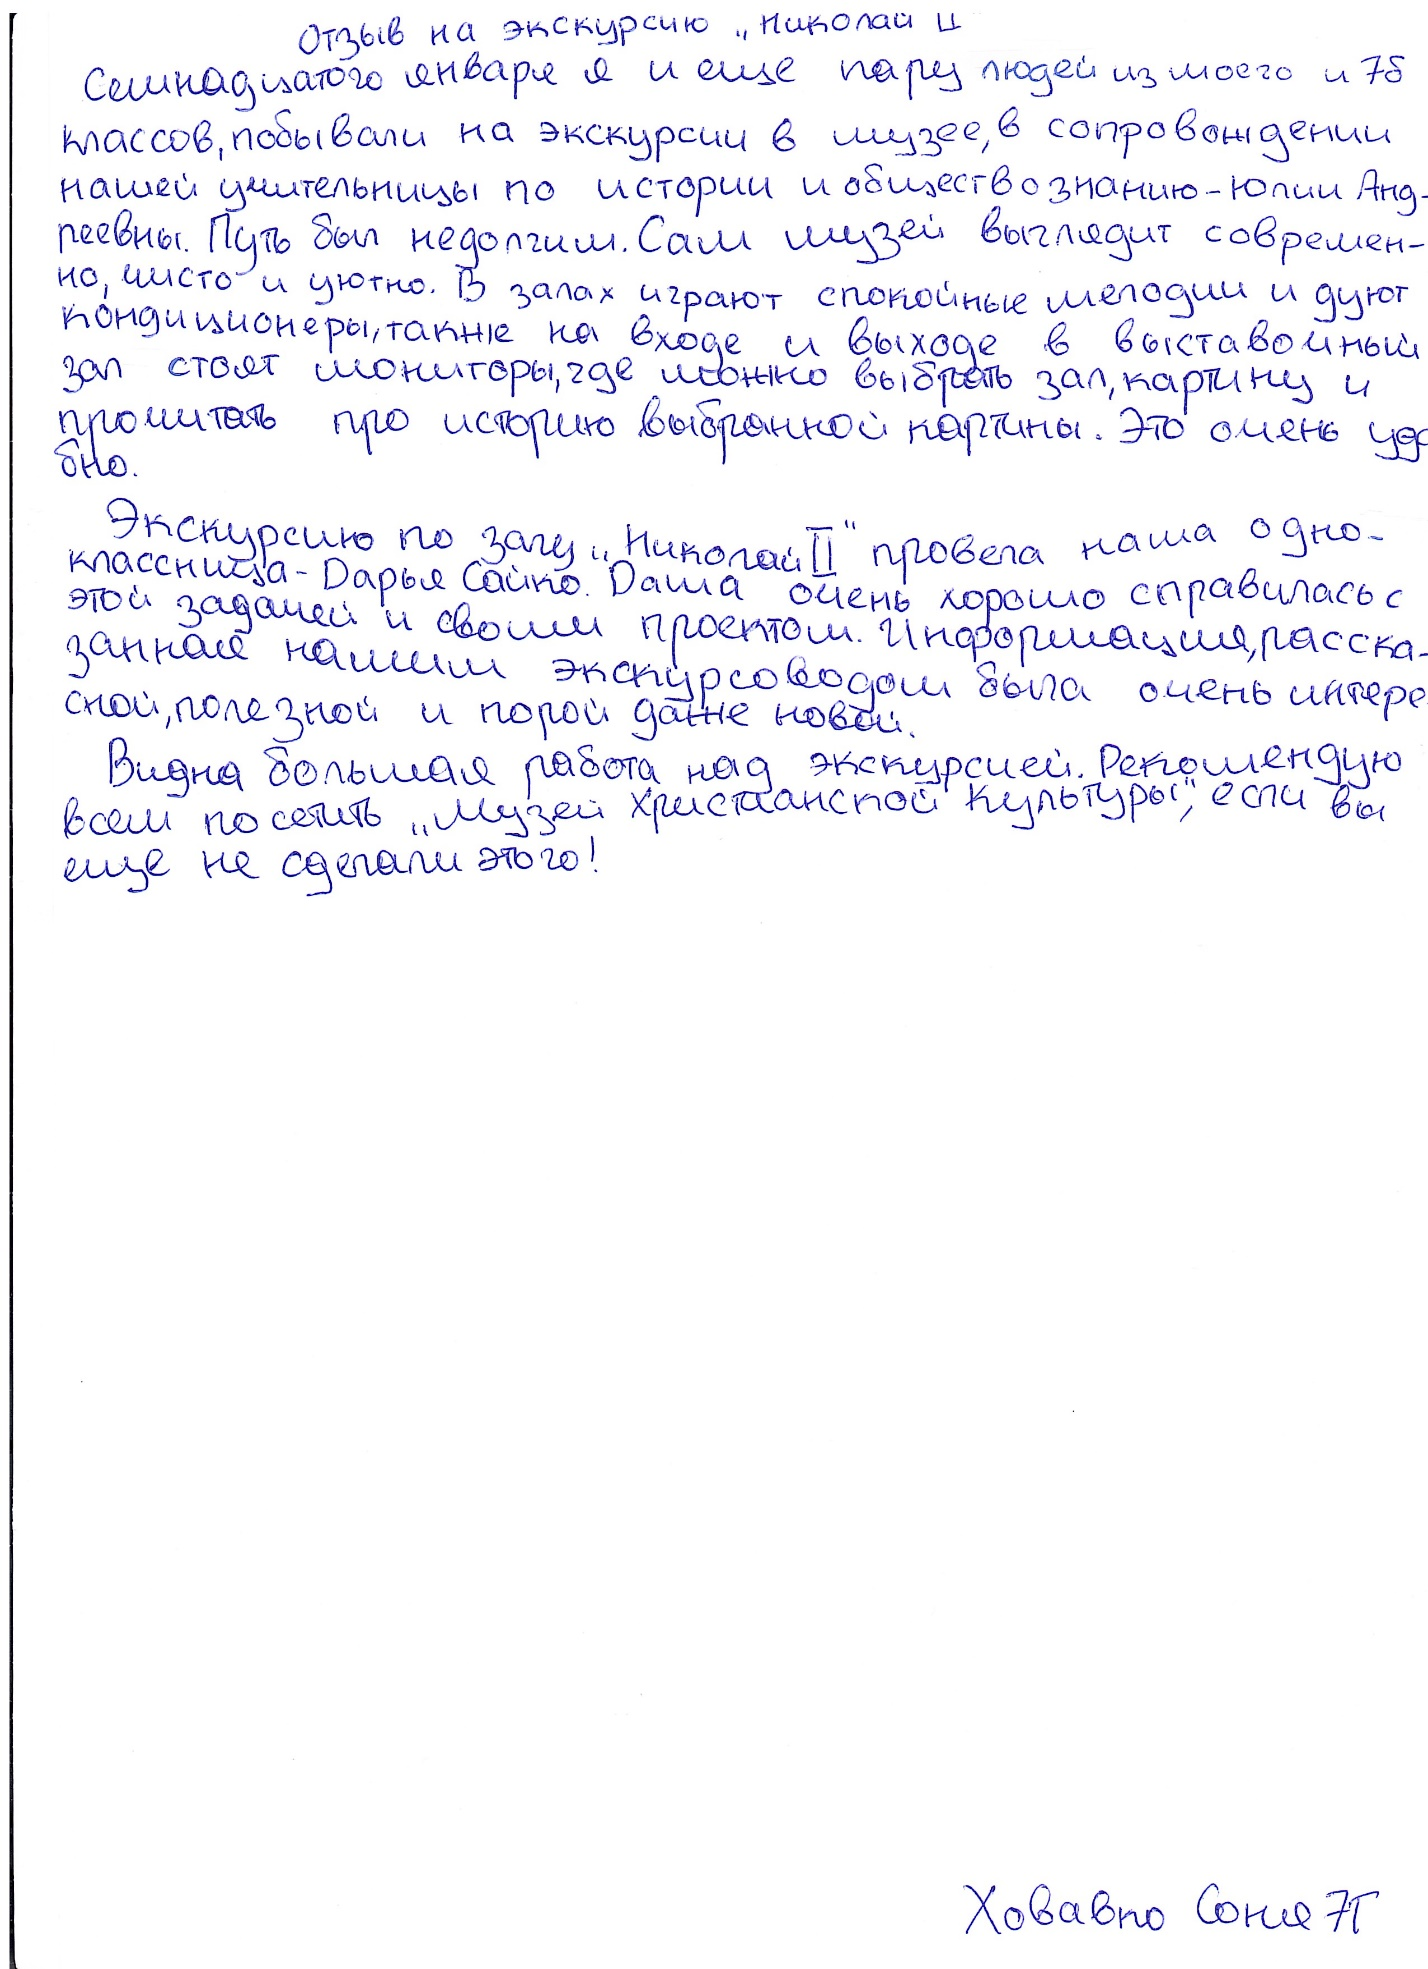 Отзыв на экскурсию „Николай II
Семнадцатого января я и еще пару людей из моего и 7б
классов, побывали на экскурсии в музее, в сопровождении
нашей учительницы по истории и обществознанию - Юлии Анд-
реевны. Путь был недолгим. Сам музей выглядит современ-
но, чисто и уютно. В залах играют спокойные мелодии и дуют
кондиционеры, также на входе и выходе в выставочный
зал стоят мониторы, где можно выбрать зал, картину и
прочитать про историю выбранной картины. Это очень удо
бно.
Экскурсию по залу „Николай II“ провела наша одно-
классница - Дарья Сайко. Даша очень хорошо справилась с
этой задачей и своим проектом. Информация, расска-
занная нашим экскурсоводом была очень интере
сной, полезной и порой даже новой.
Видна большая работа над экскурсией. Рекомендую
всем посетить „Музей Христианской Культуры“, если вы
еще не сделали этого!
Ховавко Соня 7Г